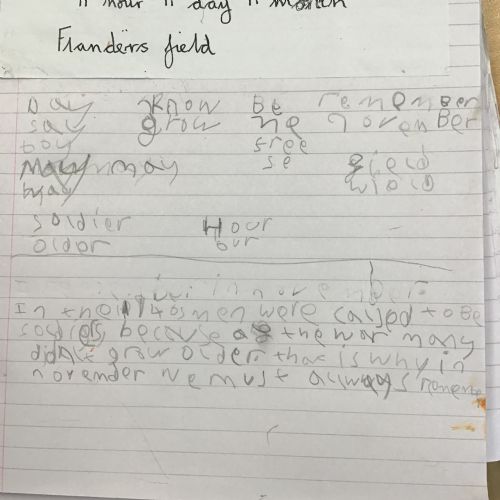 11 hour 11 day 11 month
Flanders field
Day know Be rememBer
say grow he novemBer
boy free
May may se field
wield
soldier Hour
older our
In the 1140s men were called to Be
soldiers because of the war many
didn't grow older that is why in
novemder we must allways rememe